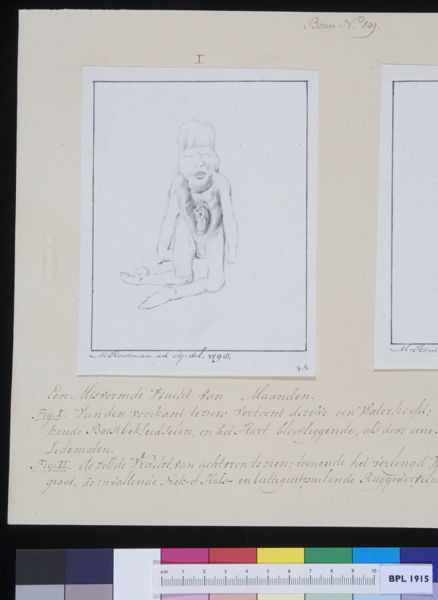 Bonn N.º 249.
I.
M. Houtman ad obj. del. 1798.
M. Hout
Een Misvormde Vrucht van Maanden.
Fig. I. Van den voorkant te zien; vertoont dezelve een Waterhoofd;
kende Borstbekleedselen, en het Hart blootleggende, als door eene
Ledematen.
Fig: II. de zelfde Vrucht, van achteren te zien; toonende het verlengd
graat, de invallende Nek- of Hals- en
cm 1 2 3 4 5 6 7 8 9 10
BPL 1915